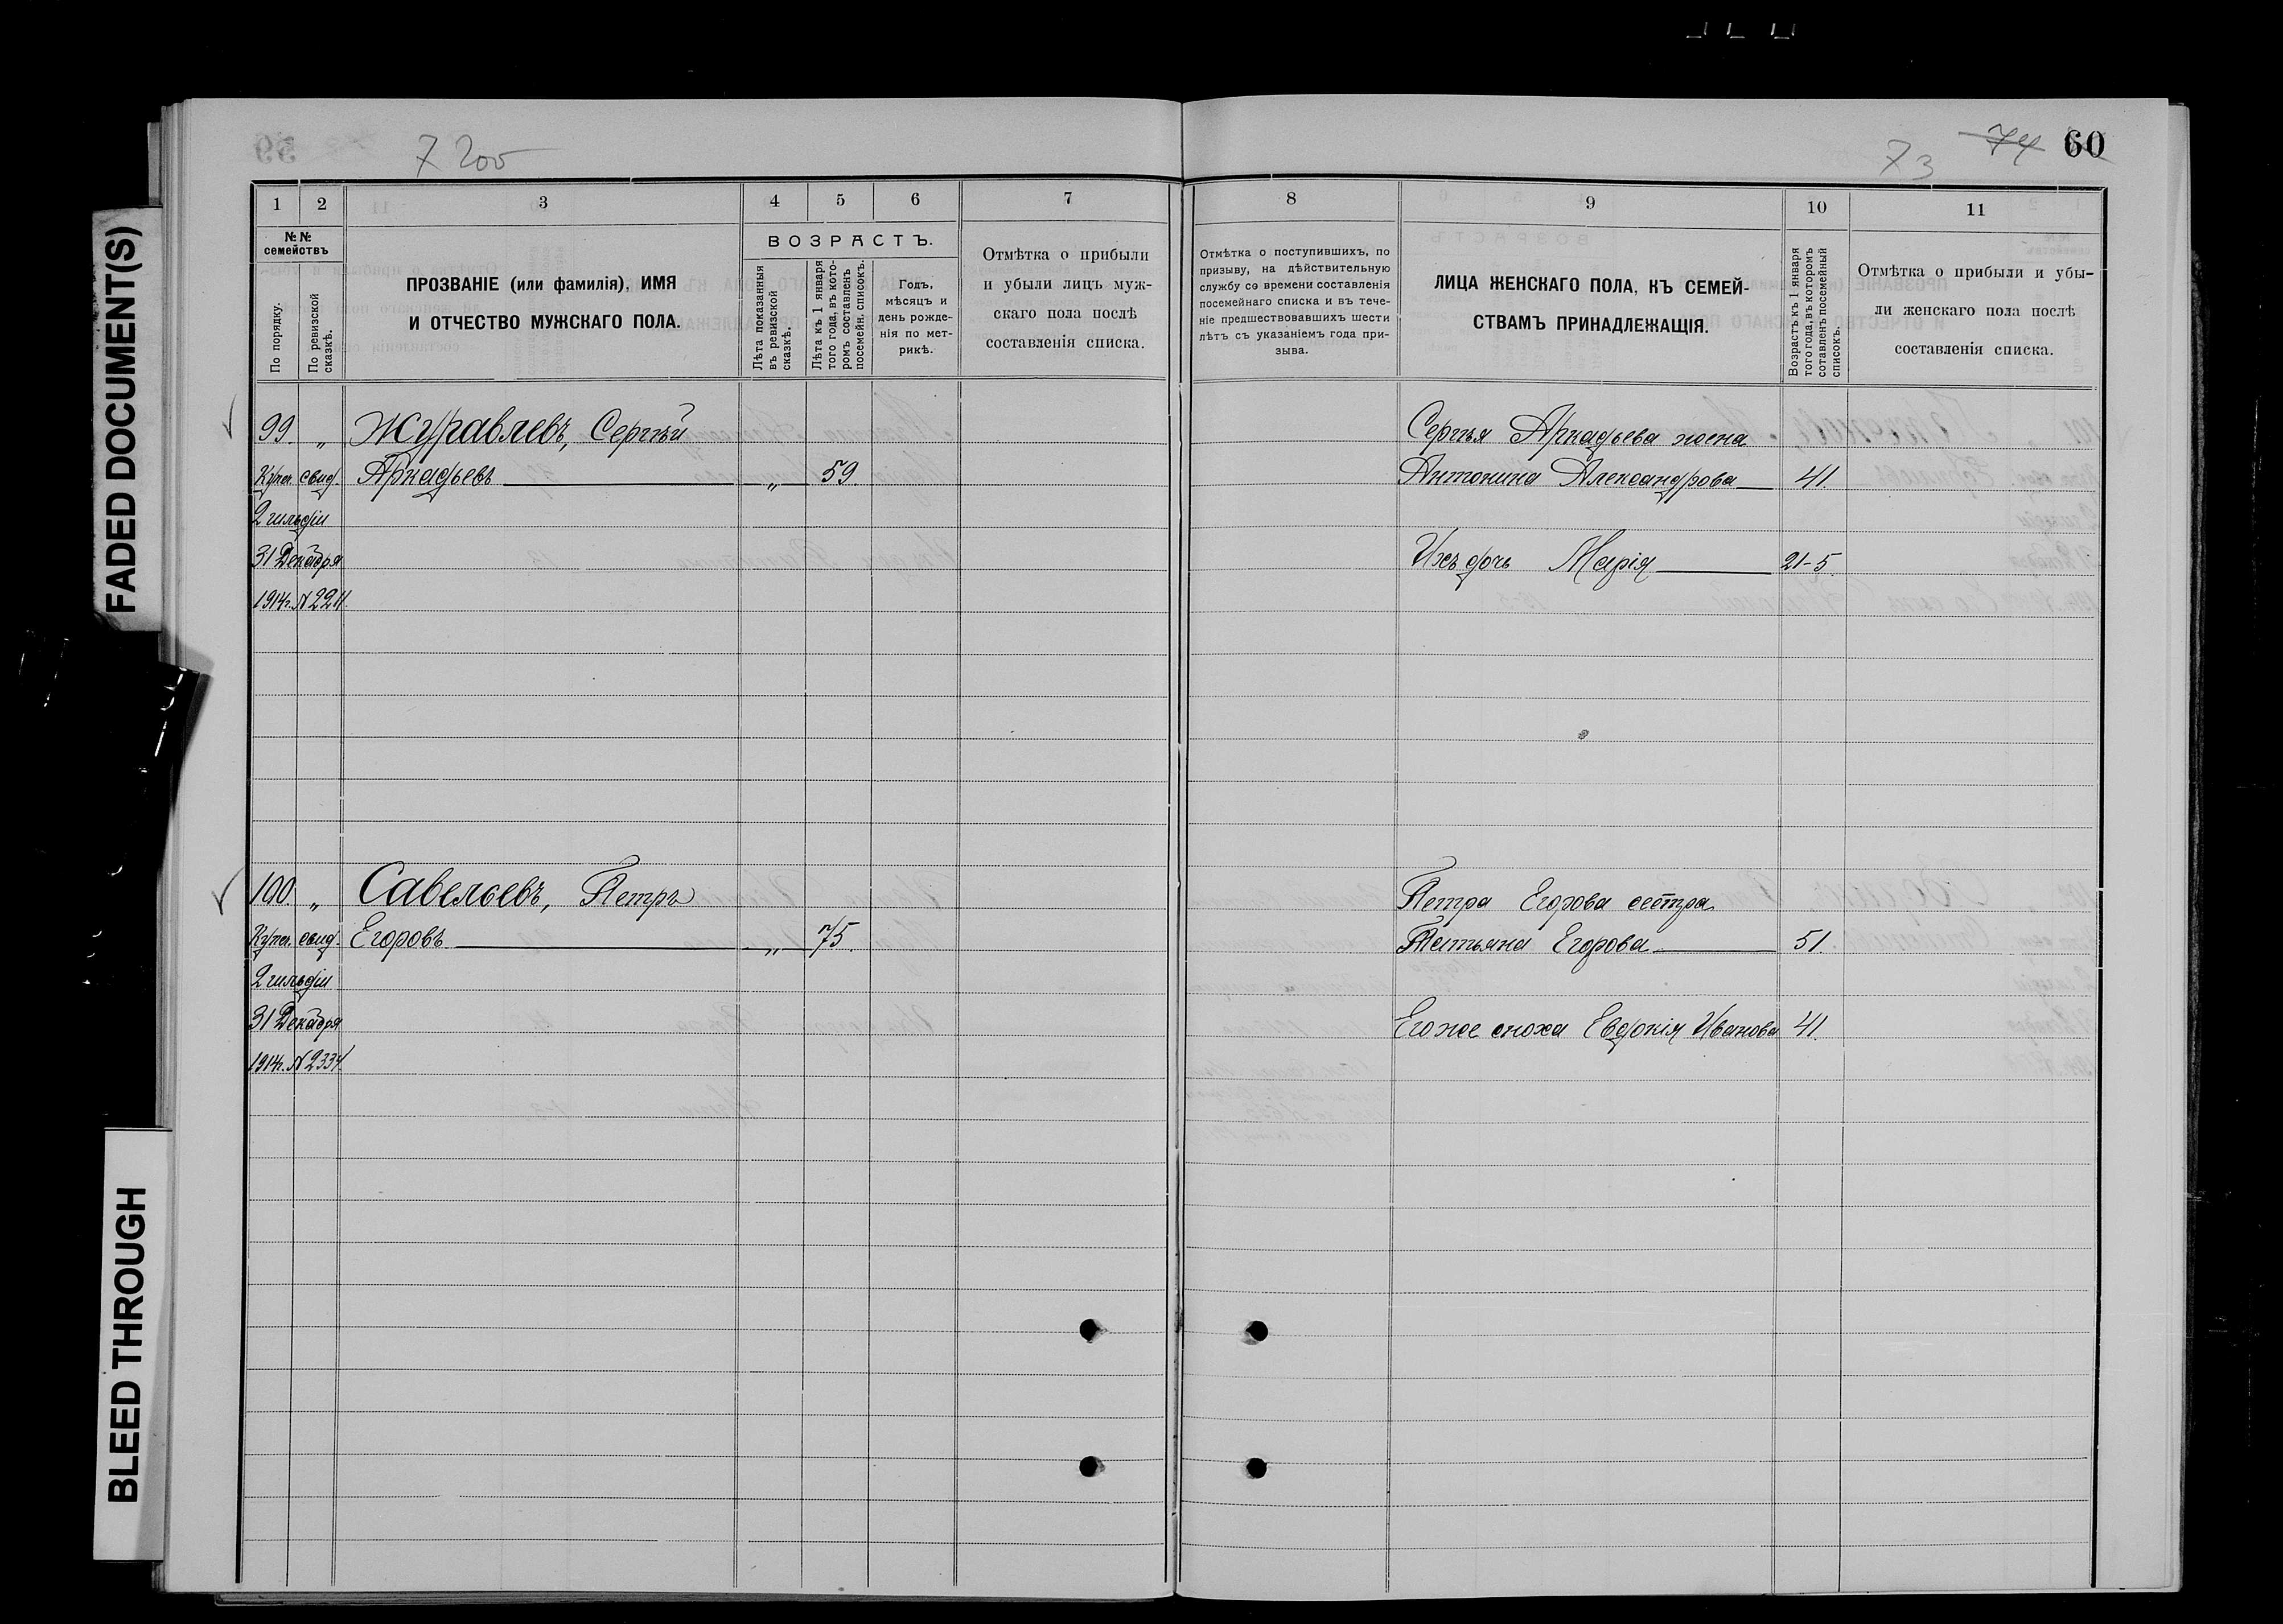 FADED DOCUMENT(S)
BLEED THROUGH
7 200
73 74 60
1 2 3 4 5 6 7
№№ семействъ
По порядку.
По ревизской сказкѣ.
ПРОЗВАНІЕ (или фамилія), ИМЯ
И ОТЧЕСТВО МУЖСКАГО ПОЛА.
ВОЗРАСТЪ.
Лѣта показанныя
въ ревизской
сказкѣ.
Лѣта къ 1 января
того года, въ кото-
ромъ составленъ
посемейн. списокъ.
Годъ,
мѣсяцъ и
день рожде-
нія по мет-
рикѣ.
Отмѣтка о прибыли
и убыли лицъ муж-
скаго пола послѣ
составленія списка.
8 9 10 11
Отмѣтка о поступившихъ, по
призыву, на дѣйствительную
службу со времени составленія
посемейнаго списка и въ тече-
ніе предшествовавшихъ шести
лѣтъ съ указаніемъ года при-
зыва.
ЛИЦА ЖЕНСКАГО ПОЛА, КЪ СЕМЕЙ-
СТВАМЪ ПРИНАДЛЕЖАЩІЯ.
Возрастъ къ 1 января
того года, въ которомъ
составленъ посемейный
списокъ.
Отмѣтка о прибыли и убы-
ли женскаго пола послѣ
составленія списка.
99. „ Журавлевъ, Сергѣй
Купеч. свид. Аркадьевъ „ 59.
2 гильдіи
31 Декабря
1914г. N 2211.
Сергѣя Аркадьева жена
Антонина Александрова 41.
Ихъ дочь Марія 21-5.
100. „ Савельевъ, Петръ
Купеч. свид. Егоровъ „ 75.
2 гильдіи
31 Декабря
1914г. N 2334.
Петра Егорова сестра
Татьяна Егорова 51.
Его же сноха Евдокія Иванова 41.